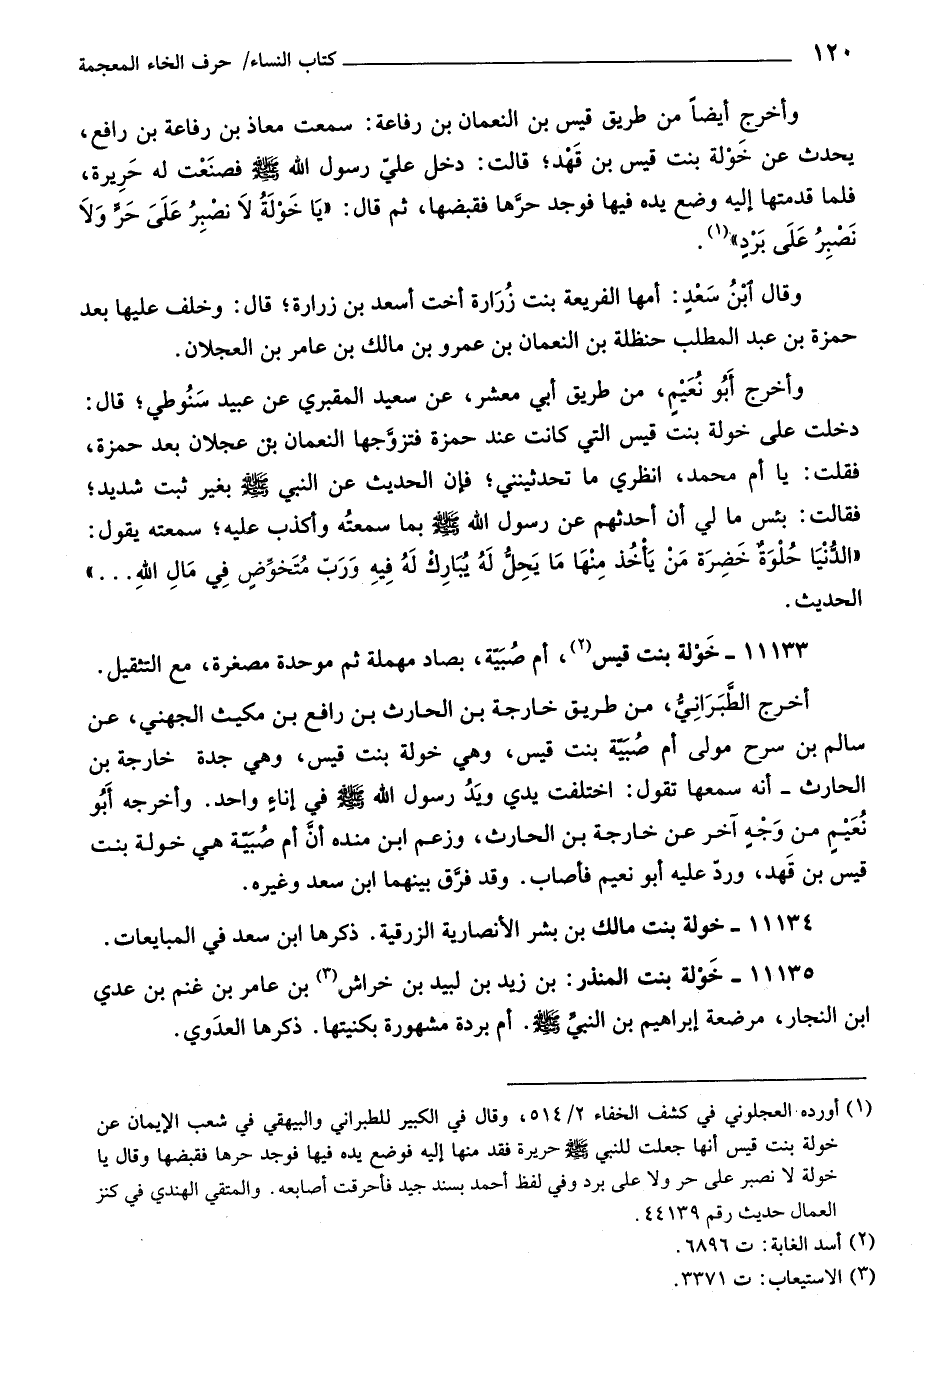 ١٢٠ ــــــــــــــــــــــــــــــــــــــــ كتاب النساء/ حرف الخاء المعجمة
وأخرج أيضاً من طريق قيس بن النعمان بن رفاعة: سمعت معاذ بن رفاعة بن رافع،
يحدث عن خَوْلة بنت قيس بن قَهْد؛ قالت: دخل عليّ رسول الله ﷺ فصنَعْت له حَرِيرة،
فلما قدمتها إليه وضع يده فيها فوجد حرَّها فقبضها، ثم قال: «يَا خَوْلَةُ لَا نصْبِرُ عَلَىَ حَرٍّ وَلَا
نَصْبِرُ عَلَى بَرْدٍ»(١).
وقال ٱبْنُ سَعْدٍ: أمها الفريعة بنت زُرَارة أخت أسعد بن زرارة؛ قال: وخلف عليها بعد
حمزة بن عبد المطلب حنظلة بن النعمان بن عمرو بن مالك بن عامر بن العجلان.
وأخرج أَبُو نُعَيْمٍ، من طريق أبي معشر، عن سعيد المقبري عن عبيد سَنُوطي؛ قال:
دخلت على خولة بنت قيس التي كانت عند حمزة فتزوَّجها النعمان بن عجلان بعد حمزة،
فقلت: يا أم محمد، انظري ما تحدثينني؛ فإن الحديث عن النبي ﷺ بغير ثبت شديد؛
فقالت: بئس ما لي أن أحدثهم عن رسول الله ﷺ بما سمعتُه وأكذب عليه؛ سمعته يقول:
«الدُّنْيَا حُلْوَةٌ خَضِرَة مَنْ يَأْخُذ مِنْهَا مَا يَحِلُّ لَهُ يُبَارِكْ لَهُ فِيهِ وَرَبّ مُتَخوِّضٍ فِي مَالِ اللهِ...»
الحديث.
١١١٣٣ ـ خَوْلة بنت قيس(٢)، أم صُبَيَّة، بصاد مهملة ثم موحدة مصغرة، مع التثقيل.
أخرج الطَّبَرَانِيُّ، من طريق خارجة بن الحارث بن رافع بن مكيث الجهني، عن
سالم بن سرح مولى أم صُبَيَّة بنت قيس، وهي خولة بنت قيس، وهي جدة خارجة بن
الحارث ـ أنه سمعها تقول: اختلفت يدي ويَدُ رسول الله ﷺ في إناءٍ واحد. وأخرجه أَبُو
نُعَيْمٍ من وَجْهٍ آخر عن خارجة بن الحارث، وزعم ابن منده أنَّ أم صُبَيّة هي خولة بنت
قيس بن قَهد، وردّ عليه أبو نعيم فأصاب. وقد فرَّق بينهما ابن سعد وغيره.
١١١٣٤ ـ خولة بنت مالك بن بشر الأنصارية الزرقية. ذكرها ابن سعد في المبايعات.
١١١٣٥ ـ خَوْلة بنت المنذر: بن زيد بن لبيد بن خراش(٣) بن عامر بن غنم بن عدي
ابن النجار، مرضعة إبراهيم بن النبيِّ ﷺ. أم بردة مشهورة بكنيتها. ذكرها العدَوي.
(١) أورده العجلوني في كشف الخفاء ٢/ ٥١٤، وقال في الكبير للطبراني والبيهقي في شعب الإيمان عن
خولة بنت قيس أنها جعلت للنبي ﷺ حريرة فقد منها إليه فوضع يده فيها فوجد حرها فقبضها وقال يا
خولة لا نصبر على حر ولا على برد وفي لفظ أحمد بسند جيد فأحرقت أصابعه. والمتقي الهندي في كنز
العمال حديث رقم ٤٤١٣٩.
(٢) أسد الغابة: ت ٦٨٩٦.
(٣) الاستيعاب: ت ٣٣٧١.